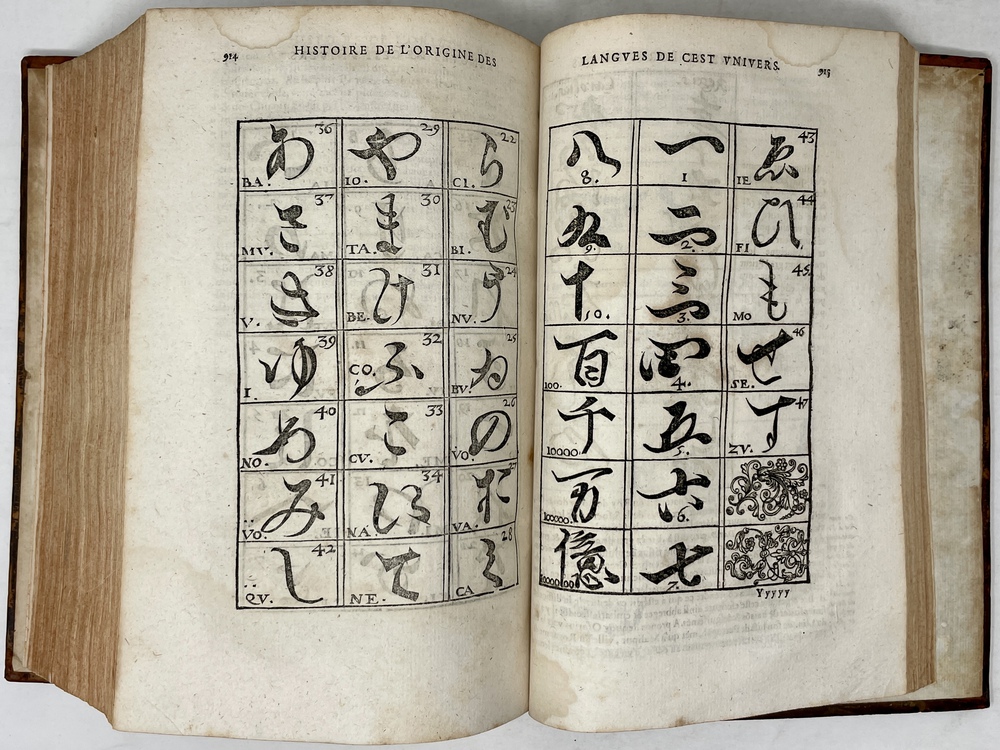 914 HISTOIRE DE L'ORIGINE DES
あ 36 BA. や 29 IO. ら 22 CI.
さ 37 MV. ま 30 TA. む 23 BI.
き 38 V. け 31 BE. う 24 NV.
ゆ 39 I. ふ 32 CO. ゐ 25 BV.
め 40 NO. こ 33 CV. の 26 VO.
み 41 VO. え 34 NA. お 27 VA.
し 42 QV. て NE. く 28 CA
LANGVES DE CEST VNIVERS. 915
八 8. 一 1 ゑ 43 IE
九 9. 二 2. ひ 44 FI
十 10. 三 3. も 45 MO
百 100. 四 4. せ 46 SE.
千 10000. 五 5. す 47 ZV.
万 100000. 六 6.
億 七 7.
Yyyyy